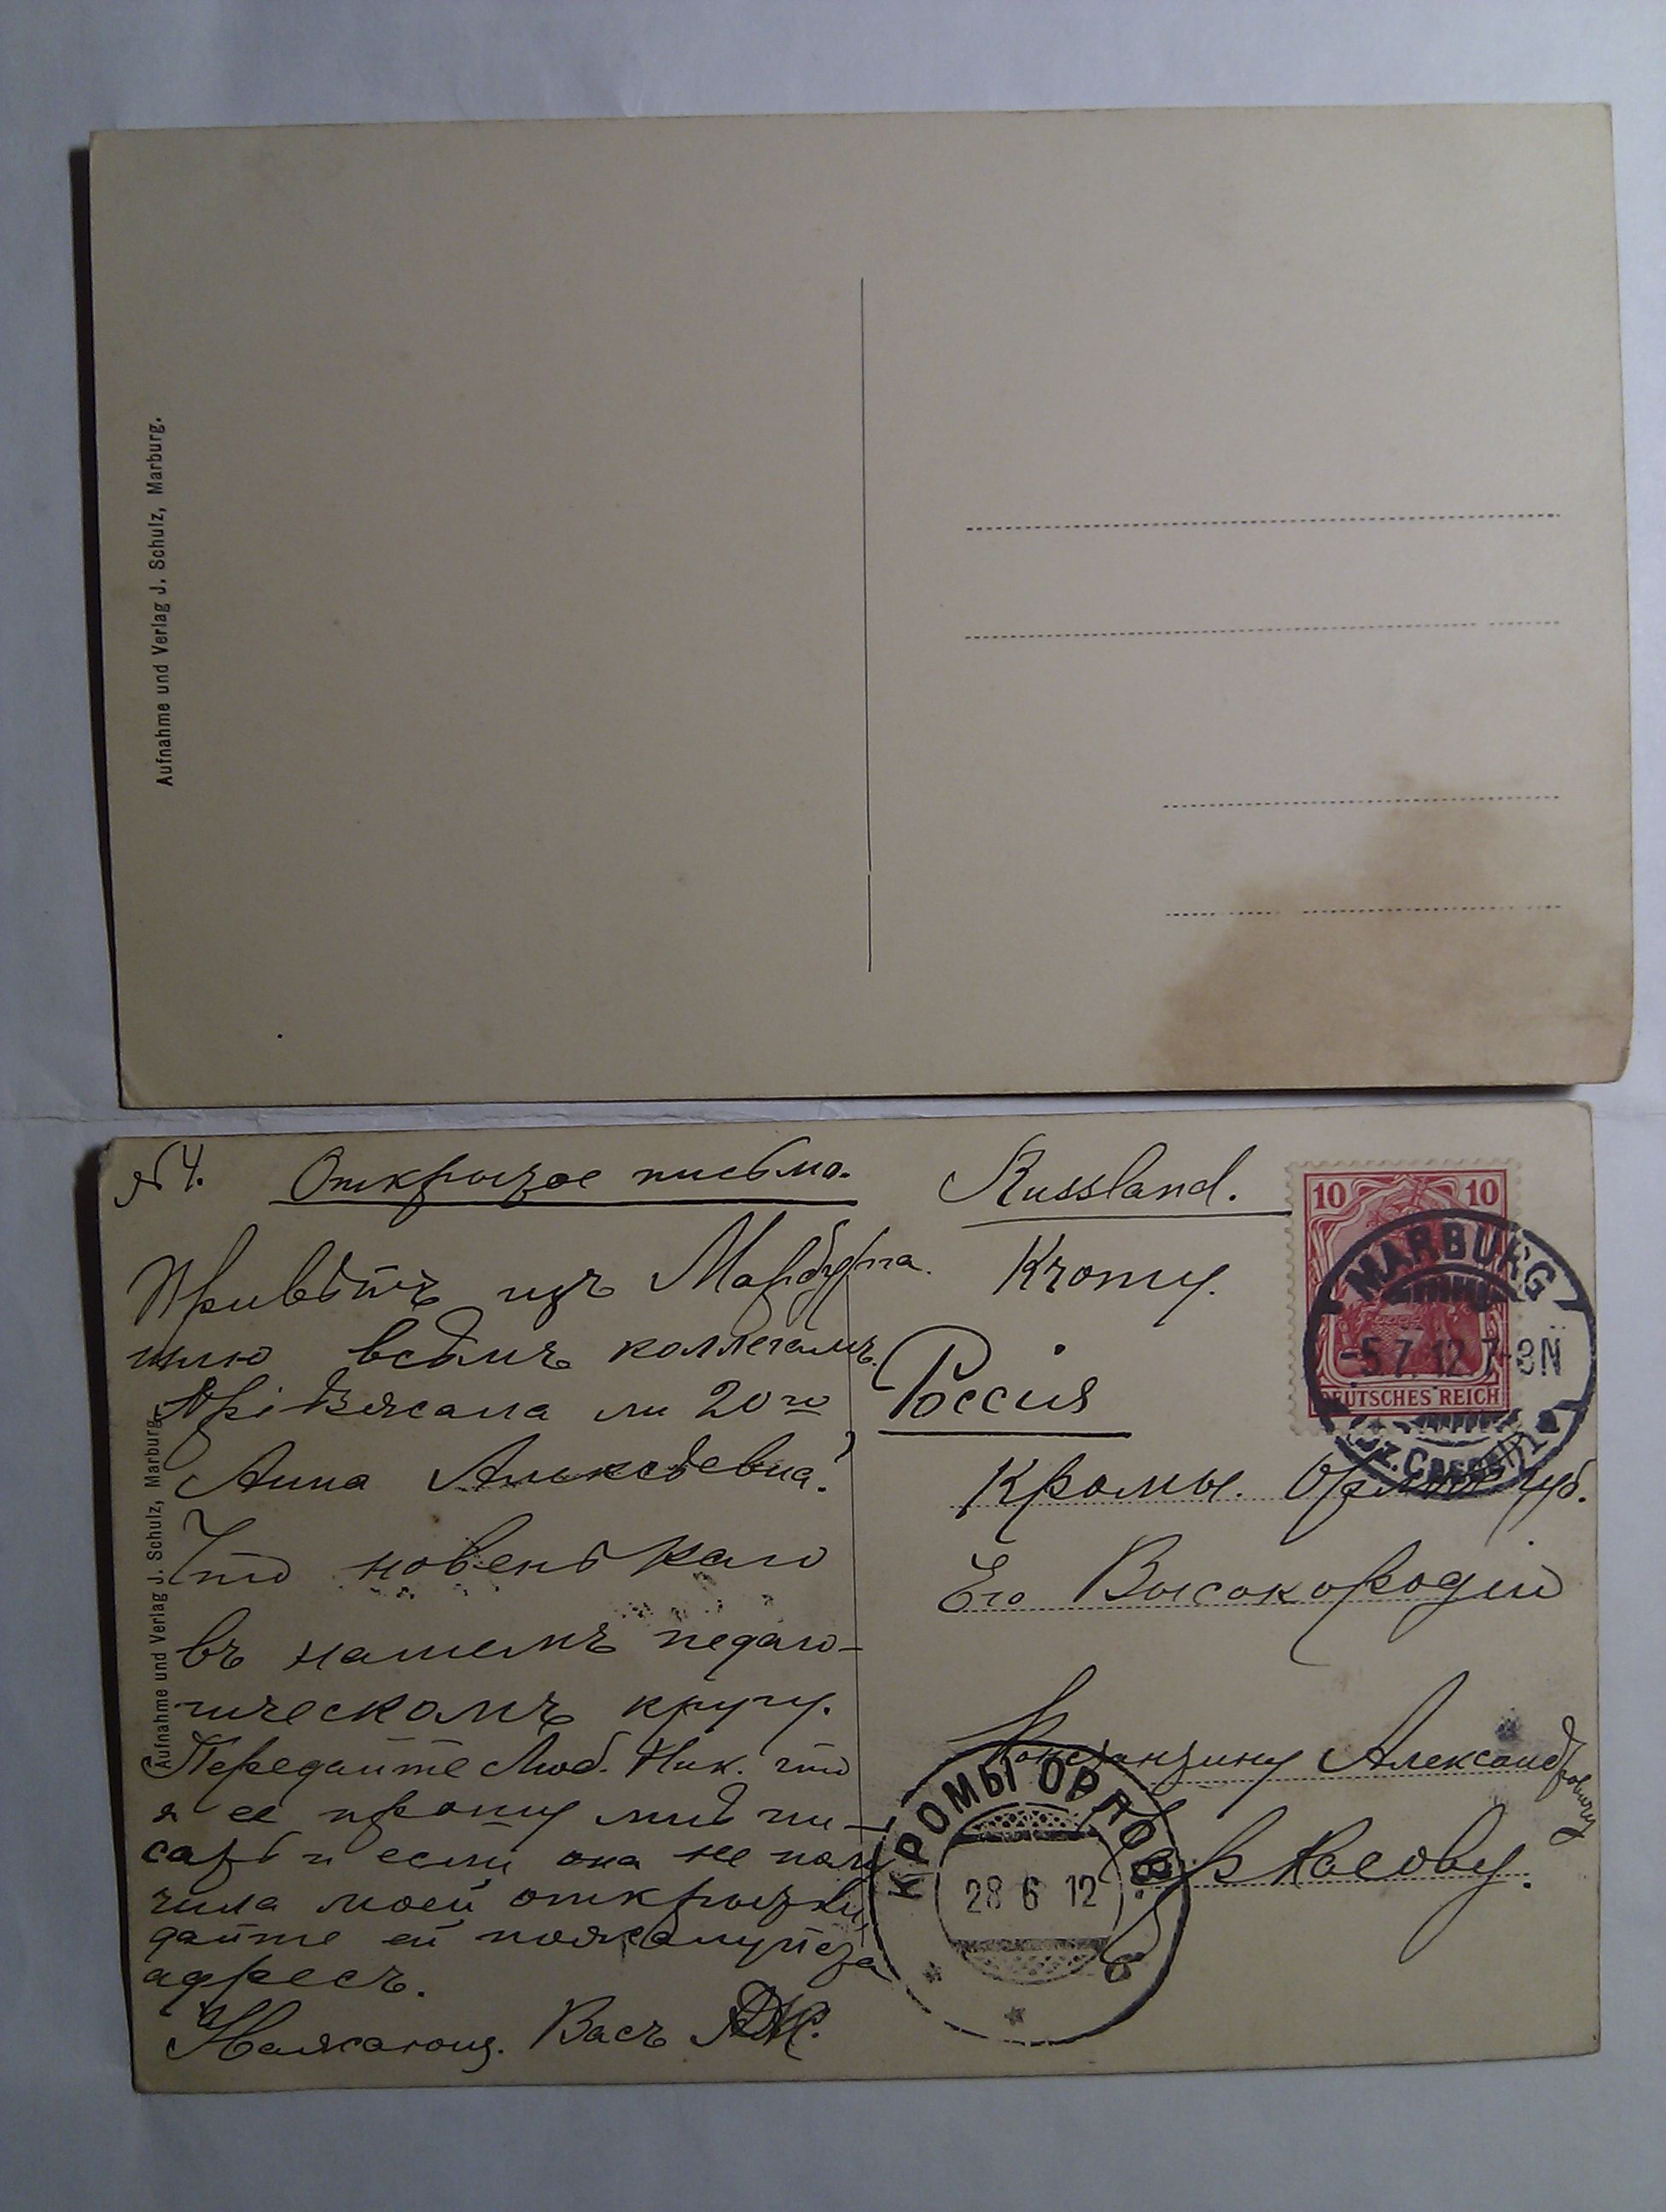 Aufnahme und Verlag J. Schulz, Marburg.
№ 4. Открытое письмо.
Привѣтъ изъ Марбурга.
шлю всѣмъ коллегамъ.
Пріѣзжала ли 20го
Анна Алексѣевна?
Что новенькаго
въ нашемъ педаго-
гическомъ кругу.
Передайте Люб. Ник. что
я ее прошу мнѣ пи-
сать и если она не полу
чила моей открытки
дайте ей пожалуйста
адресъ.
Уважающ. Васъ
Aufnahme und Verlag J. Schulz, Marburg.
Russland.
Kromy.
Россія
Кромы. Орлов. губ.
Его Высокородію
Константину Александровичу
10 10
DEUTSCHES REICH
MARBURG
-5.7.12.7-8N
КРОМЫ ОРЛОВ.
28 6 12